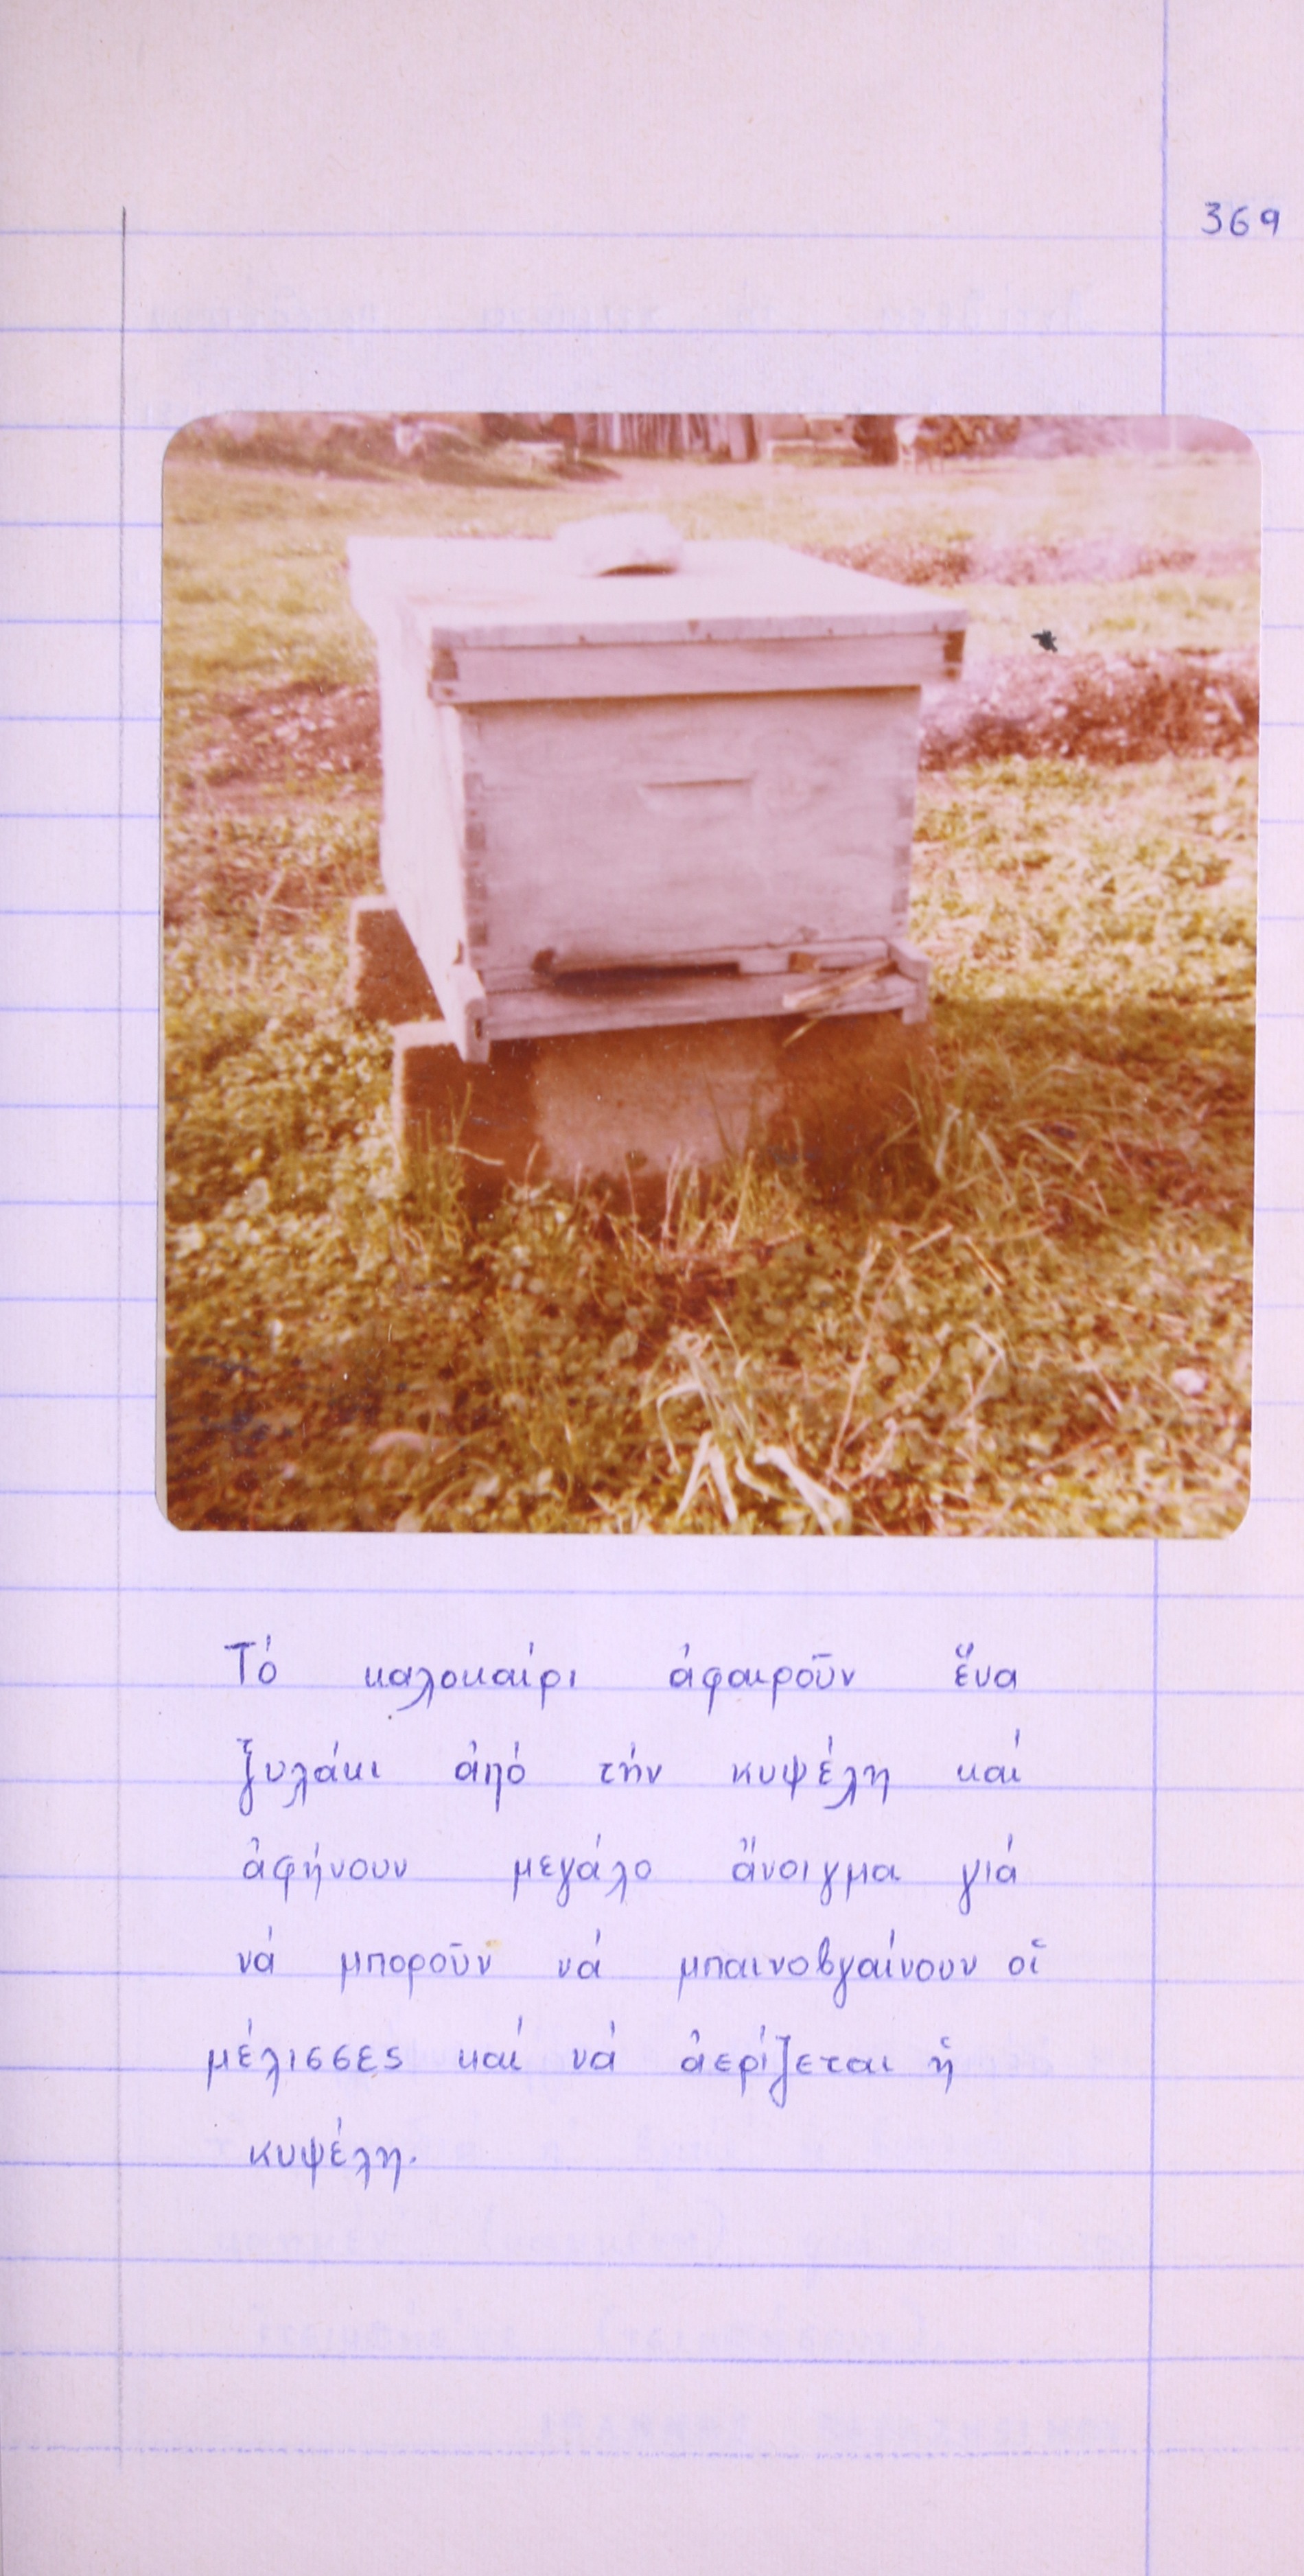 369
Τό καλοκαίρι ἀφαιροῦν ἕνα
ξυλάκι ἀπό τήν κυψέλη καί
ἀφήνουν μεγάλο ἄνοιγμα γιά
νά μποροῦν νά μπαινοβγαίνουν οἱ
μέλισσες καί νά ἀερίζεται ἡ
κυψέλη.